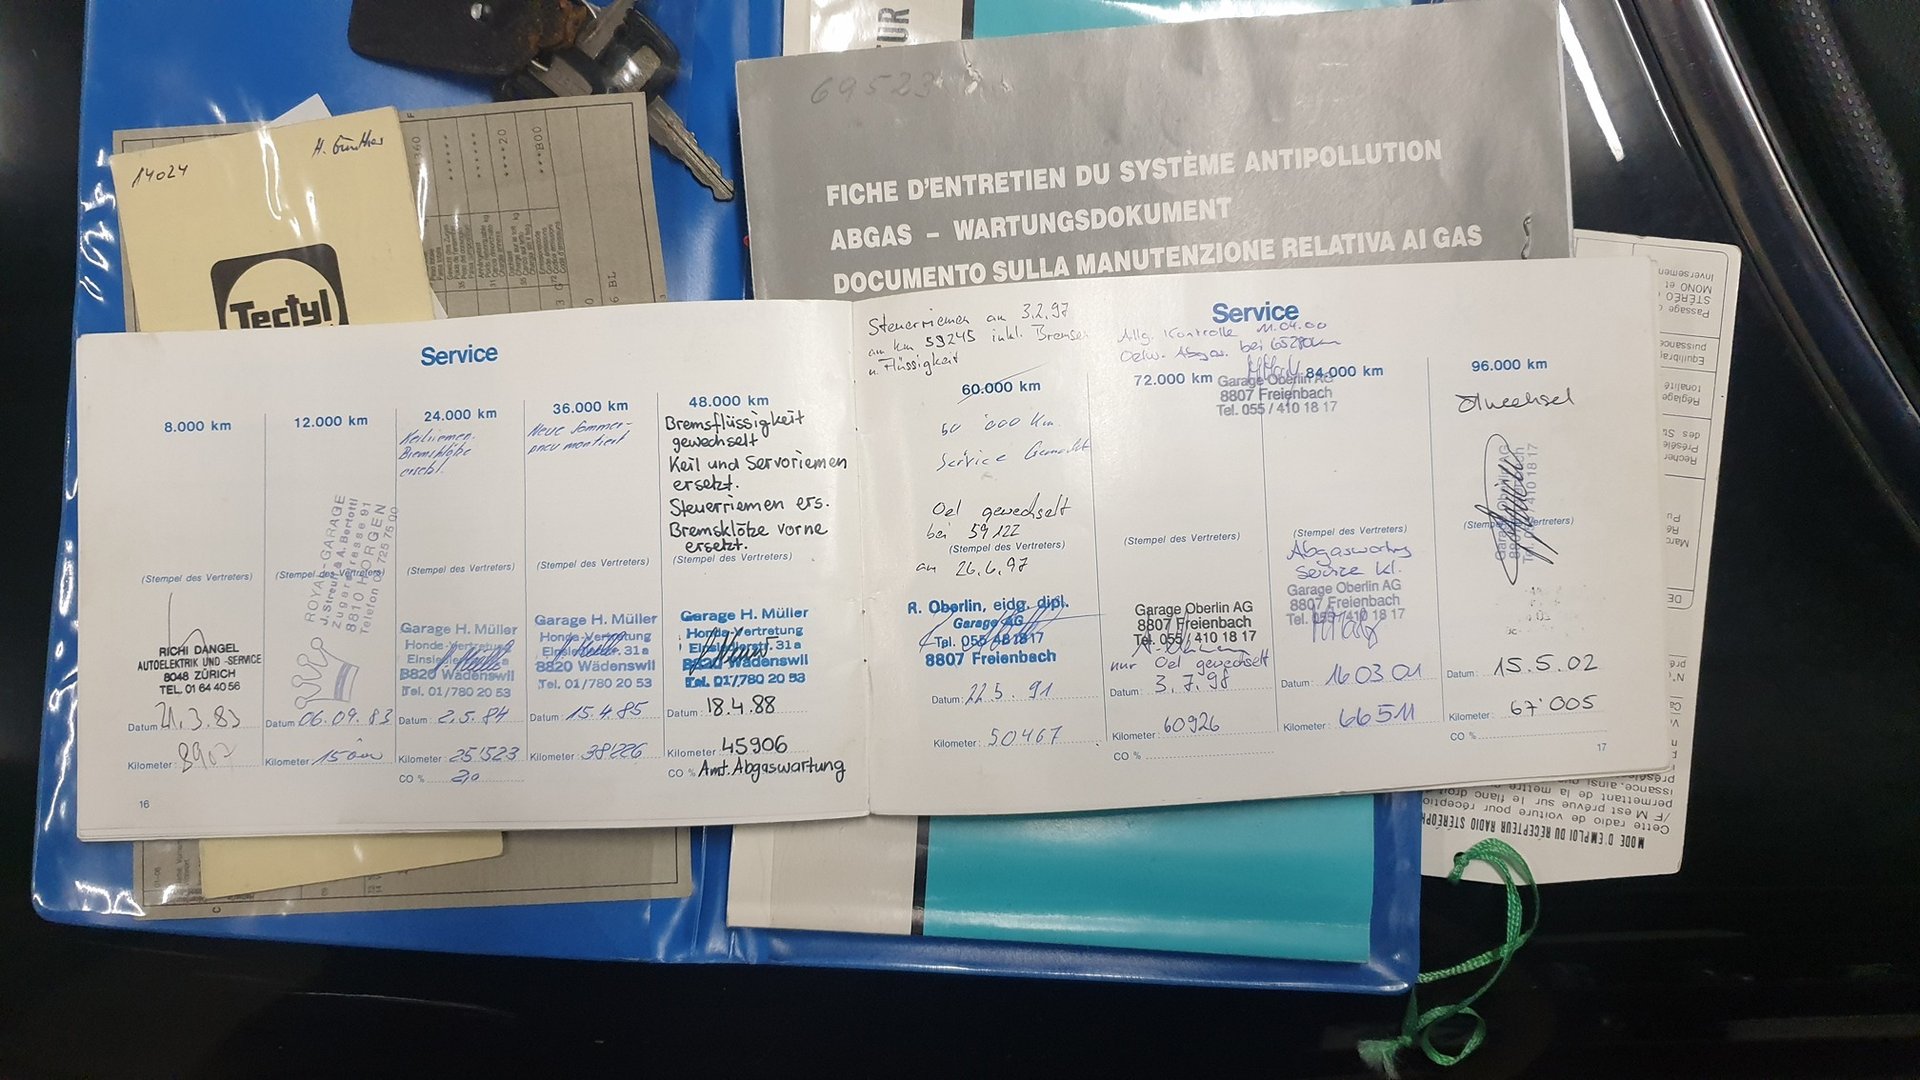 14024
H. Günther
Tectyl
69523
FICHE D'ENTRETIEN DU SYSTÈME ANTIPOLLUTION
ABGAS – WARTUNGSDOKUMENT
DOCUMENTO SULLA MANUTENZIONE RELATIVA AI GAS
Service
8.000 km
(Stempel des Vertreters)
RICHI DANGEL
AUTOELEKTRIK UND -SERVICE
8048 ZÜRICH
TEL. 01 64 40 56
Datum 21.3.83
Kilometer: 8907
12.000 km
(Stempel des Vertreters)
ROYAL-GARAGE
J. Streuli & A. Bertotti
Zugerstrasse 91
8810 HORGEN
Telefon 01 725 75 00
Datum 06.09.83
Kilometer 15000
24.000 km
Keilriemen.
Bremsklötze
ersetzt.
(Stempel des Vertreters)
Garage H. Müller
Honda-Vertretung
8820 Wädenswil
Tel. 01/780 20 53
Datum: 2.5.84
Kilometer: 25'523
CO % 2,0
36.000 km
Neue Sommer-
pneu montiert
(Stempel des Vertreters)
Garage H. Müller
Honda-Vertretung
31a
8820 Wädenswil
Tel. 01/780 20 53
Datum: 15.4.85
Kilometer: 38226
48.000 km
Bremsflüssigkeit
gewechselt
Keil und Servoriemen
ersetzt.
Steuerriemen ers.
Bremsklötze vorne
ersetzt.
(Stempel des Vertreters)
Garage H. Müller
Honda-Vertretung
31a
8820 Wädenswil
Tel. 01/780 20 53
Datum: 18.4.88
Kilometer 45906
CO % Amt. Abgaswartung
16
Steuerriemen am 3.2.97
an km 59245 inkl. Bremsen
u. Flüssigkeit
60.000 km
50 000 Km.
Service Gemacht
Oel gewechselt
bei 59122
(Stempel des Vertreters)
am 26.6.97
R. Oberlin, eidg. dipl.
Garage AG
Tel. 055 48 18 17
8807 Freienbach
Datum: 22.5.91
Kilometer: 50467
Service
Allg. Kontrolle 11.04.00
Oelw. Abgas. bei
72.000 km
84.000 km
Garage Oberlin AG
8807 Freienbach
Tel. 055 / 410 18 17
(Stempel des Vertreters)
Garage Oberlin AG
8807 Freienbach
Tel. 055 / 410 18 17
nur Oel gewechselt
Datum: 3.7.98
Kilometer: 60926
CO %
(Stempel des Vertreters)
Abgaswartung
Service kl.
Garage Oberlin AG
8807 Freienbach
Tel. 055 / 410 18 17
Datum: 16 03 01
Kilometer: 66511
96.000 km
Ölwechsel
(Stempel des Vertreters)
Garage Oberlin AG
8807 Freienbach
Tel. 055 / 410 18 17
Datum: 15.5.02
Kilometer: 67'005
CO %
17
MODE D'EMPLOI DU RECEPTEUR RADIO
Cette radio de voiture pour réception